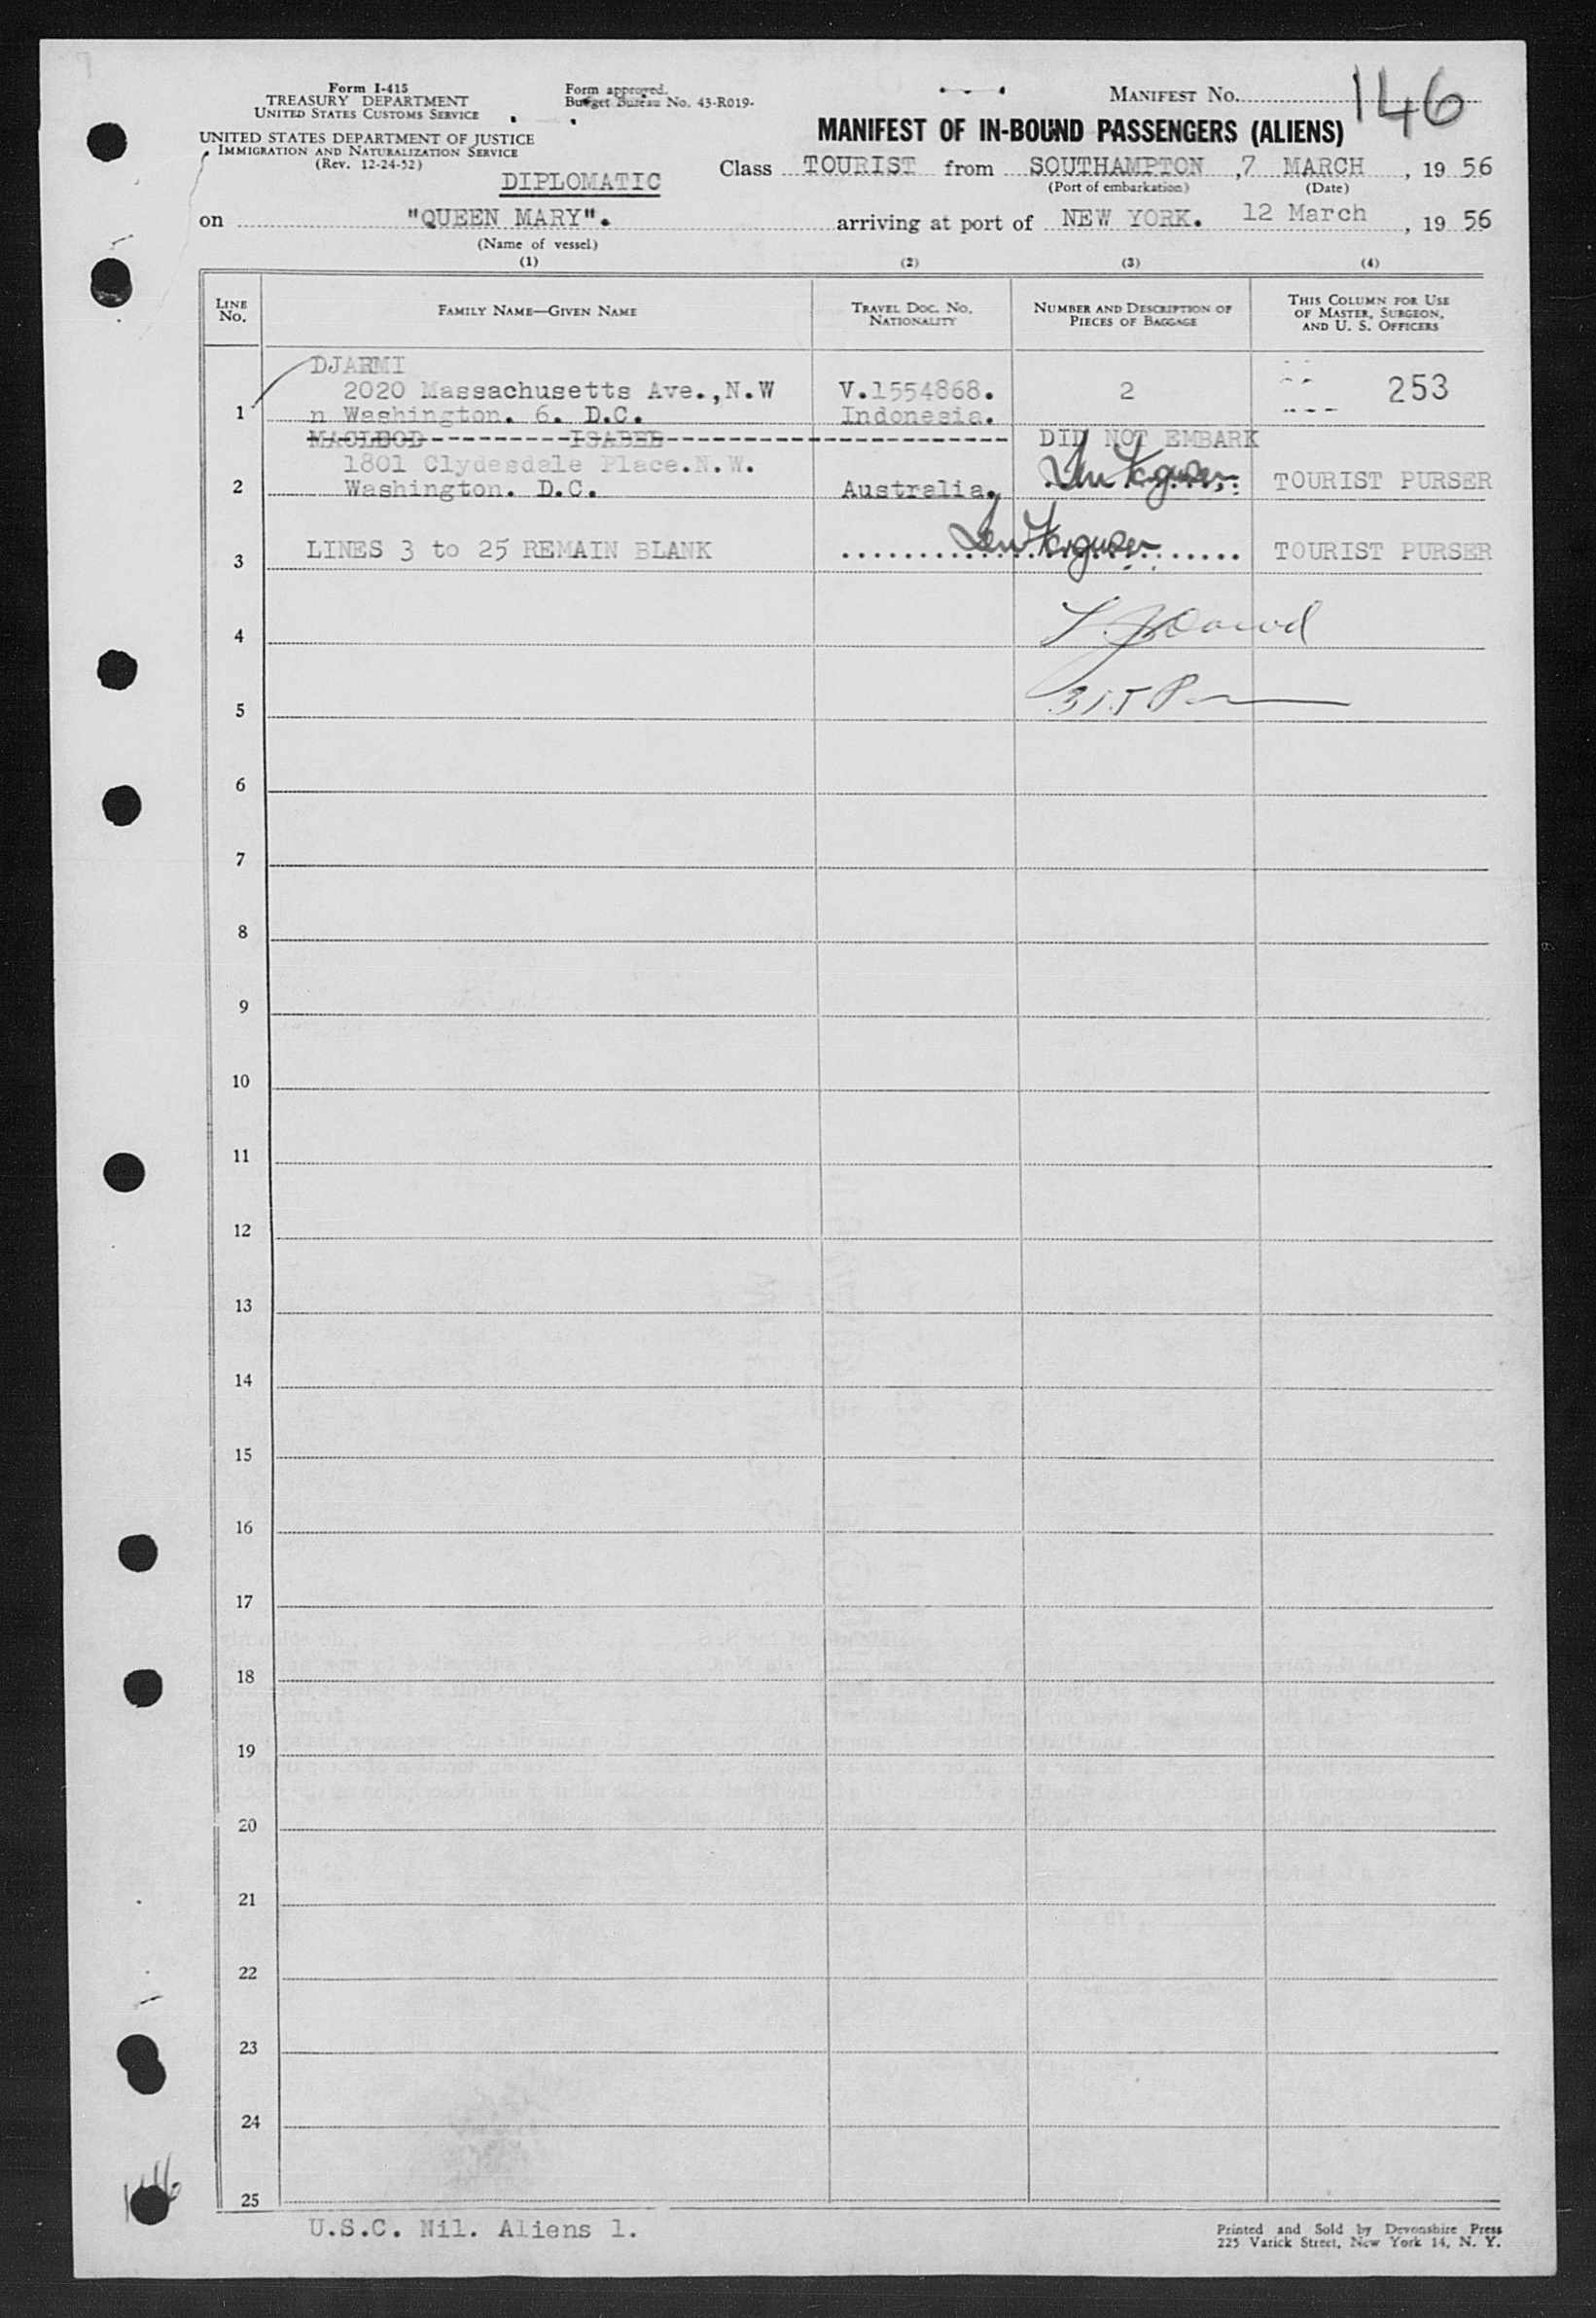 Form I-415
TREASURY DEPARTMENT
UNITED STATES CUSTOMS SERVICE
UNITED STATES DEPARTMENT OF JUSTICE
IMMIGRATION AND NATURALIZATION SERVICE
(Rev. 12-24-52)
Form approved.
Budget Bureau No. 43-R019-
MANIFEST NO. 146
MANIFEST OF IN-BOUND PASSENGERS (ALIENS)
DIPLOMATIC
Class TOURIST from SOUTHAMPTON, 7 MARCH, 19 56
(Port of embarkation) (Date)
on "QUEEN MARY". arriving at port of NEW YORK. 12 March, 19 56
(Name of vessel)
(1) (2) (3) (4)
LINE NO. FAMILY NAME—GIVEN NAME TRAVEL DOC. NO. NATIONALITY NUMBER AND DESCRIPTION OF PIECES OF BAGGAGE THIS COLUMN FOR USE OF MASTER, SURGEON, AND U. S. OFFICERS
DJARMI
2020 Massachusetts Ave.,N.W V.1554868. 2 253
1 n Washington. 6. D.C. Indonesia.
MACLEOD----------ISABEL DID NOT EMBARK
1801 Clydesdale Place.N.W.
2 Washington. D.C. Australia. TOURIST PURSER
3 LINES 3 to 25 REMAIN BLANK TOURIST PURSER
4
5 315 P
6
7
8
9
10
11
12
13
14
15
16
17
18
19
20
21
22
23
24
25
146
U.S.C. Nil. Aliens 1.
Printed and Sold by Devonshire Press
225 Varick Street, New York 14, N. Y.